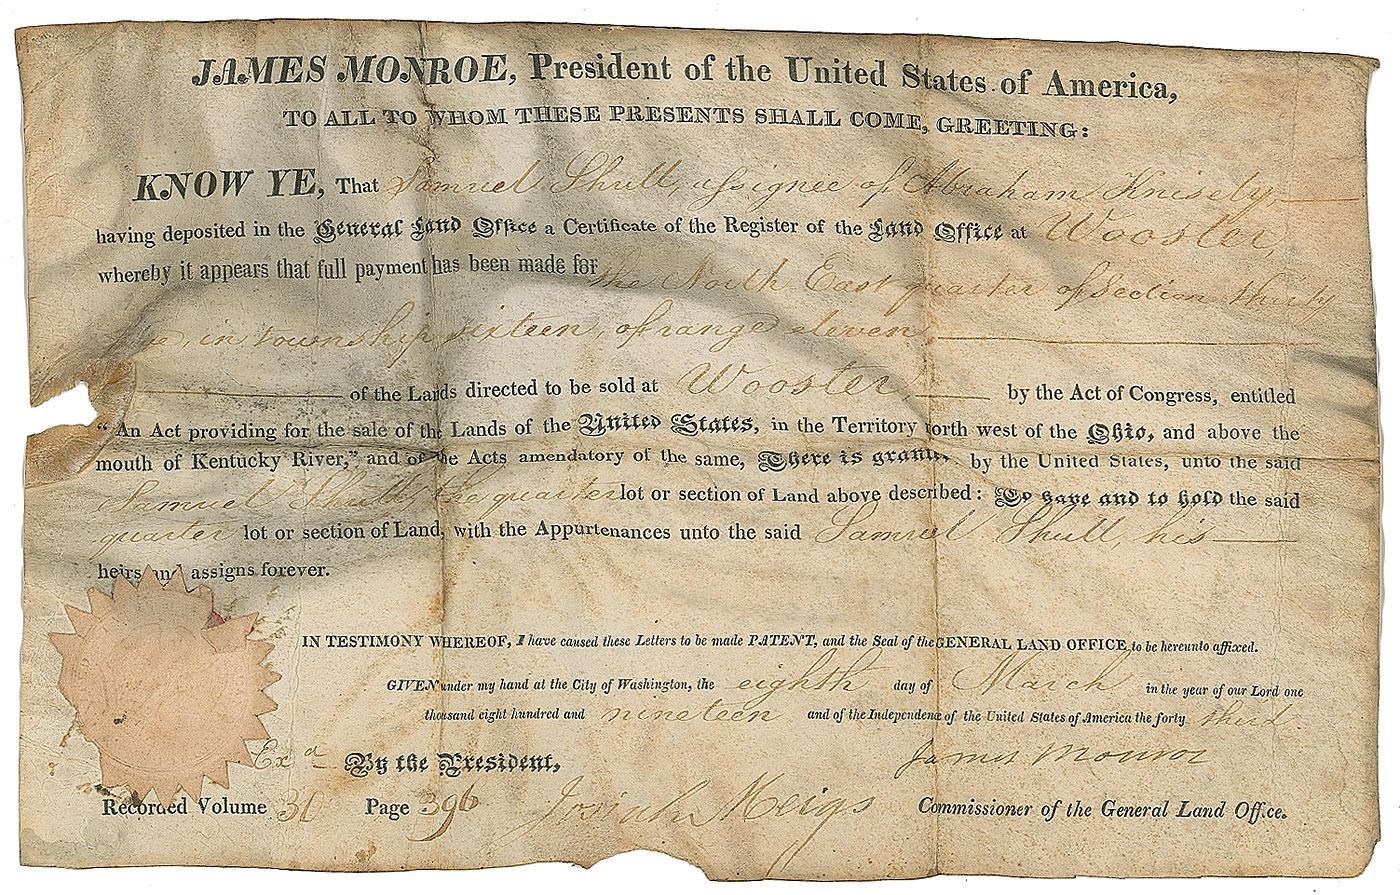 JAMES MONROE, President of the United States of America,
TO ALL TO WHOM THESE PRESENTS SHALL COME, GREETING:
KNOW YE, That Samuel Shull, assignee of Abraham Knisely,
having deposited in the General Land Office a Certificate of the Register of the Land Office at Wooster,
whereby it appears that full payment has been made for the North East quarter of Section thirty
in township sixteen, of range eleven
of the Lands directed to be sold at Wooster by the Act of Congress, entitled
“An Act providing for the sale of the Lands of the United States, in the Territory north west of the Ohio, and above the
mouth of Kentucky River,” and of the Acts amendatory of the same, There is granted, by the United States, unto the said
Samuel Shull, the quarter lot or section of Land above described: To have and to hold the said
quarter lot or section of Land, with the Appurtenances unto the said Samuel Shull, his
heirs and assigns forever.
IN TESTIMONY WHEREOF, I have caused these Letters to be made PATENT, and the Seal of the GENERAL LAND OFFICE to be hereunto affixed.
GIVEN under my hand at the City of Washington, the eighth day of March in the year of our Lord one
thousand eight hundred and nineteen and of the Independence of the United States of America the forty third
James Monroe
Exd By the President,
Josiah Meigs Commissioner of the General Land Office.
Recorded Volume Page 396